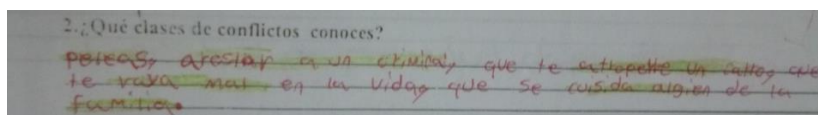 2.¿Qué clases de conflictos conoces?
peleas, arestar a un criminal, que te atropelle un carro, que
te vaya mal en la vida, que se cuisida algien de la
familia.